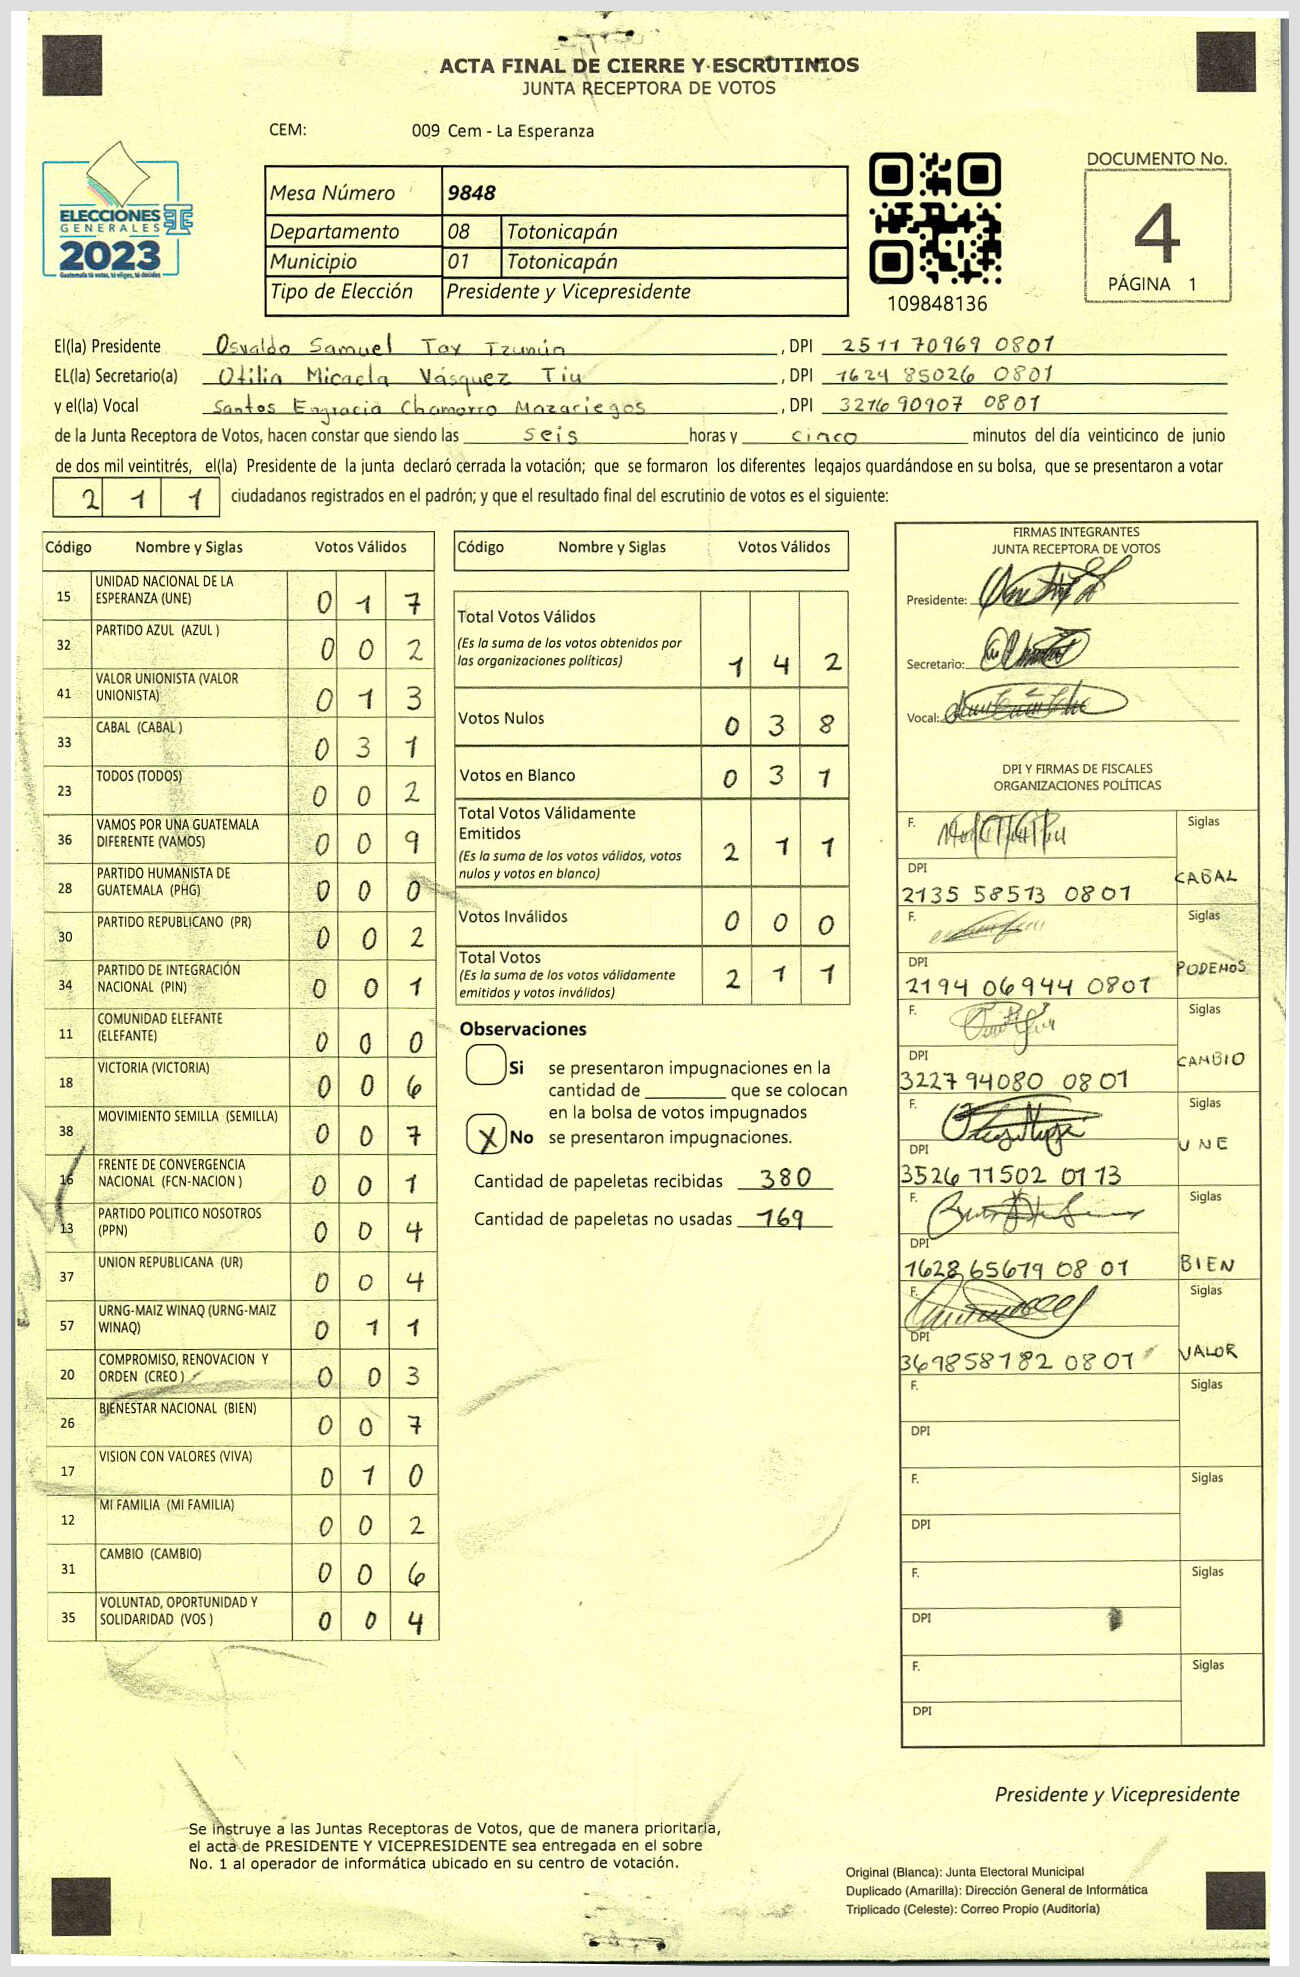 ACTA FINAL DE CIERRE Y ESCRUTINIOS
JUNTA RECEPTORA DE VOTOS
CEM: 009 Cem - La Esperanza
ELECCIONES
GENERALES
2023
Guatemala tú votas, tú eliges, tú decides
Mesa Número 9848
Departamento 08 Totonicapán
Municipio 01 Totonicapán
Tipo de Elección Presidente y Vicepresidente
109848136
DOCUMENTO No.
4
PÁGINA 1
El(la) Presidente Osvaldo Samuel Tax Tzunún, DPI 2511 70969 0801
EL(la) Secretario(a) Otilia Micaela Vásquez Tiu, DPI 1624 85026 0801
y el(la) Vocal Santos Engracia Chamorro Mazariegos, DPI 3216 90907 0801
de la Junta Receptora de Votos, hacen constar que siendo las seis horas y cinco minutos del día veinticinco de junio
de dos mil veintitrés, el(la) Presidente de la junta declaró cerrada la votación; que se formaron los diferentes legajos guardándose en su bolsa, que se presentaron a votar
2 1 1 ciudadanos registrados en el padrón; y que el resultado final del escrutinio de votos es el siguiente:
Código Nombre y Siglas Votos Válidos
15 UNIDAD NACIONAL DE LA ESPERANZA (UNE) 0 1 7
32 PARTIDO AZUL (AZUL ) 0 0 2
41 VALOR UNIONISTA (VALOR UNIONISTA) 0 1 3
33 CABAL (CABAL ) 0 3 1
23 TODOS (TODOS) 0 0 2
36 VAMOS POR UNA GUATEMALA DIFERENTE (VAMOS) 0 0 9
28 PARTIDO HUMANISTA DE GUATEMALA (PHG) 0 0 0
30 PARTIDO REPUBLICANO (PR) 0 0 2
34 PARTIDO DE INTEGRACIÓN NACIONAL (PIN) 0 0 1
11 COMUNIDAD ELEFANTE (ELEFANTE) 0 0 0
18 VICTORIA (VICTORIA) 0 0 6
38 MOVIMIENTO SEMILLA (SEMILLA) 0 0 7
16 FRENTE DE CONVERGENCIA NACIONAL (FCN-NACION ) 0 0 1
13 PARTIDO POLITICO NOSOTROS (PPN) 0 0 4
37 UNION REPUBLICANA (UR) 0 0 4
57 URNG-MAIZ WINAQ (URNG-MAIZ WINAQ) 0 1 1
20 COMPROMISO, RENOVACION Y ORDEN (CREO ) 0 0 3
26 BIENESTAR NACIONAL (BIEN) 0 0 7
17 VISION CON VALORES (VIVA) 0 1 0
12 MI FAMILIA (MI FAMILIA) 0 0 2
31 CAMBIO (CAMBIO) 0 0 6
35 VOLUNTAD, OPORTUNIDAD Y SOLIDARIDAD (VOS ) 0 0 4
Código Nombre y Siglas Votos Válidos
Total Votos Válidos
(Es la suma de los votos obtenidos por
las organizaciones políticas) 1 4 2
Votos Nulos 0 3 8
Votos en Blanco 0 3 1
Total Votos Válidamente
Emitidos
(Es la suma de los votos válidos, votos
nulos y votos en blanco) 2 1 1
Votos Inválidos 0 0 0
Total Votos
(Es la suma de los votos válidamente
emitidos y votos inválidos) 2 1 1
Observaciones
Si se presentaron impugnaciones en la
cantidad de ________ que se colocan
en la bolsa de votos impugnados
X No se presentaron impugnaciones.
Cantidad de papeletas recibidas 380
Cantidad de papeletas no usadas 169
FIRMAS INTEGRANTES
JUNTA RECEPTORA DE VOTOS
Presidente:
Secretario:
Vocal:
DPI Y FIRMAS DE FISCALES
ORGANIZACIONES POLÍTICAS
F. Siglas
DPI CABAL
2135 58513 0801
F. Siglas
DPI PODEMOS
2194 06944 0801
F. Siglas
DPI CAMBIO
3227 94080 0801
F. Siglas
DPI UNE
3526 71502 0113
F. Siglas
DPI BIEN
1628 65679 0801
F. Siglas
DPI VALOR
369858182 0801
F. Siglas
DPI
F. Siglas
DPI
F. Siglas
DPI
F. Siglas
DPI
Presidente y Vicepresidente
Se instruye a las Juntas Receptoras de Votos, que de manera prioritaria,
el acta de PRESIDENTE Y VICEPRESIDENTE sea entregada en el sobre
No. 1 al operador de informática ubicado en su centro de votación.
Original (Blanca): Junta Electoral Municipal
Duplicado (Amarilla): Dirección General de Informática
Triplicado (Celeste): Correo Propio (Auditoría)